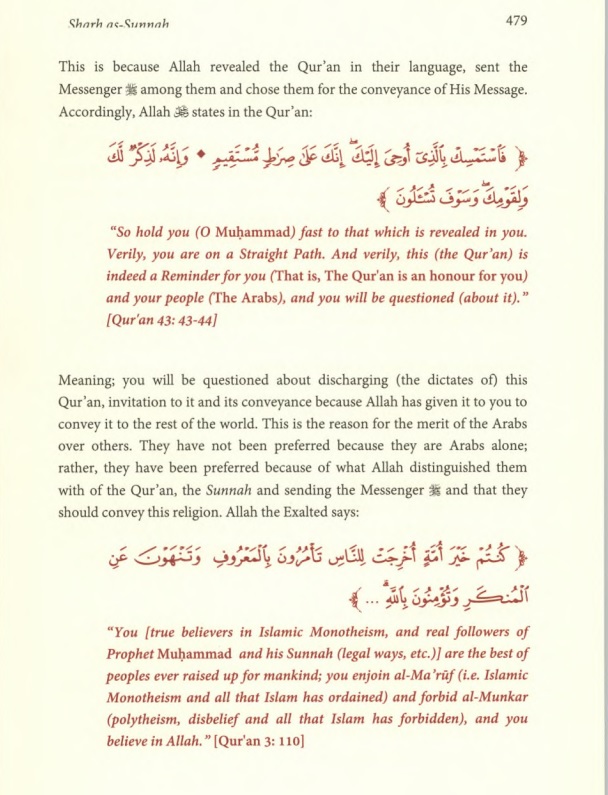 Sharh as-Sunnah
479
This is because Allah revealed the Qur'an in their language, sent the
Messenger ﷺ among them and chose them for the conveyance of His Message.
Accordingly, Allah states in the Qur'an:
﴿ فَٱسْتَمْسِكْ بِٱلَّذِىٓ أُوحِىَ إِلَيْكَ ۖ إِنَّكَ عَلَىٰ صِرَٰطٍ مُّسْتَقِيمٍ ◆ وَإِنَّهُۥ لَذِكْرٌ لَّكَ
وَلِقَوْمِكَ ۖ وَسَوْفَ تُسْـَٔلُونَ ﴾
"So hold you (O Muḥammad) fast to that which is revealed in you.
Verily, you are on a Straight Path. And verily, this (the Qur'an) is
indeed a Reminder for you (That is, The Qur'an is an honour for you)
and your people (The Arabs), and you will be questioned (about it)."
[Qur'an 43: 43-44]
Meaning; you will be questioned about discharging (the dictates of) this
Qur'an, invitation to it and its conveyance because Allah has given it to you to
convey it to the rest of the world. This is the reason for the merit of the Arabs
over others. They have not been preferred because they are Arabs alone;
rather, they have been preferred because of what Allah distinguished them
with of the Qur'an, the Sunnah and sending the Messenger ﷺ and that they
should convey this religion. Allah the Exalted says:
﴿ كُنتُمْ خَيْرَ أُمَّةٍ أُخْرِجَتْ لِلنَّاسِ تَأْمُرُونَ بِٱلْمَعْرُوفِ وَتَنْهَوْنَ عَنِ
ٱلْمُنكَرِ وَتُؤْمِنُونَ بِٱللَّهِ ۗ ... ﴾
"You [true believers in Islamic Monotheism, and real followers of
Prophet Muḥammad and his Sunnah (legal ways, etc.)] are the best of
peoples ever raised up for mankind; you enjoin al-Ma'rūf (i.e. Islamic
Monotheism and all that Islam has ordained) and forbid al-Munkar
(polytheism, disbelief and all that Islam has forbidden), and you
believe in Allah." [Qur'an 3: 110]